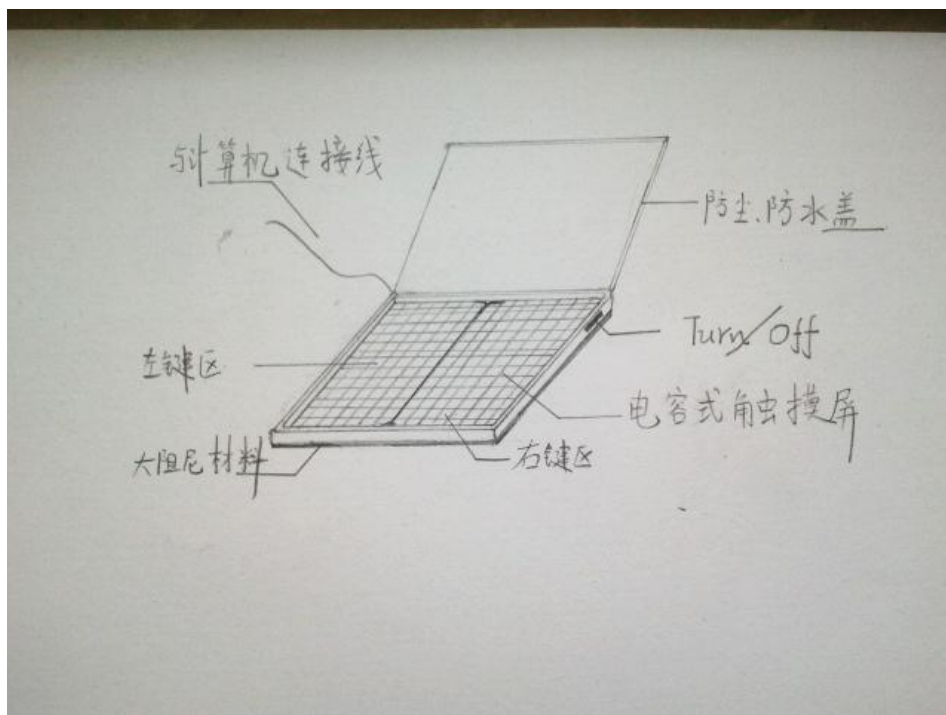 与计算机连接线
防尘、防水盖
Turn/Off
左键区
电容式触摸屏
大阻尼材料
右键区